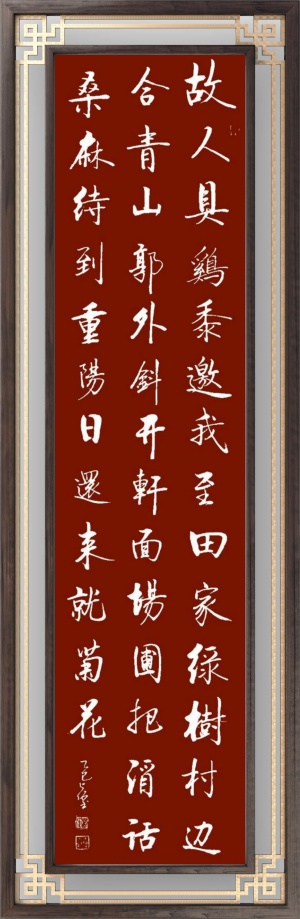 故人具鷄黍邀我至田家绿樹村边
合青山郭外斜开軒面場圃把酒话
桑麻待到重陽日還来就菊花
乙巳